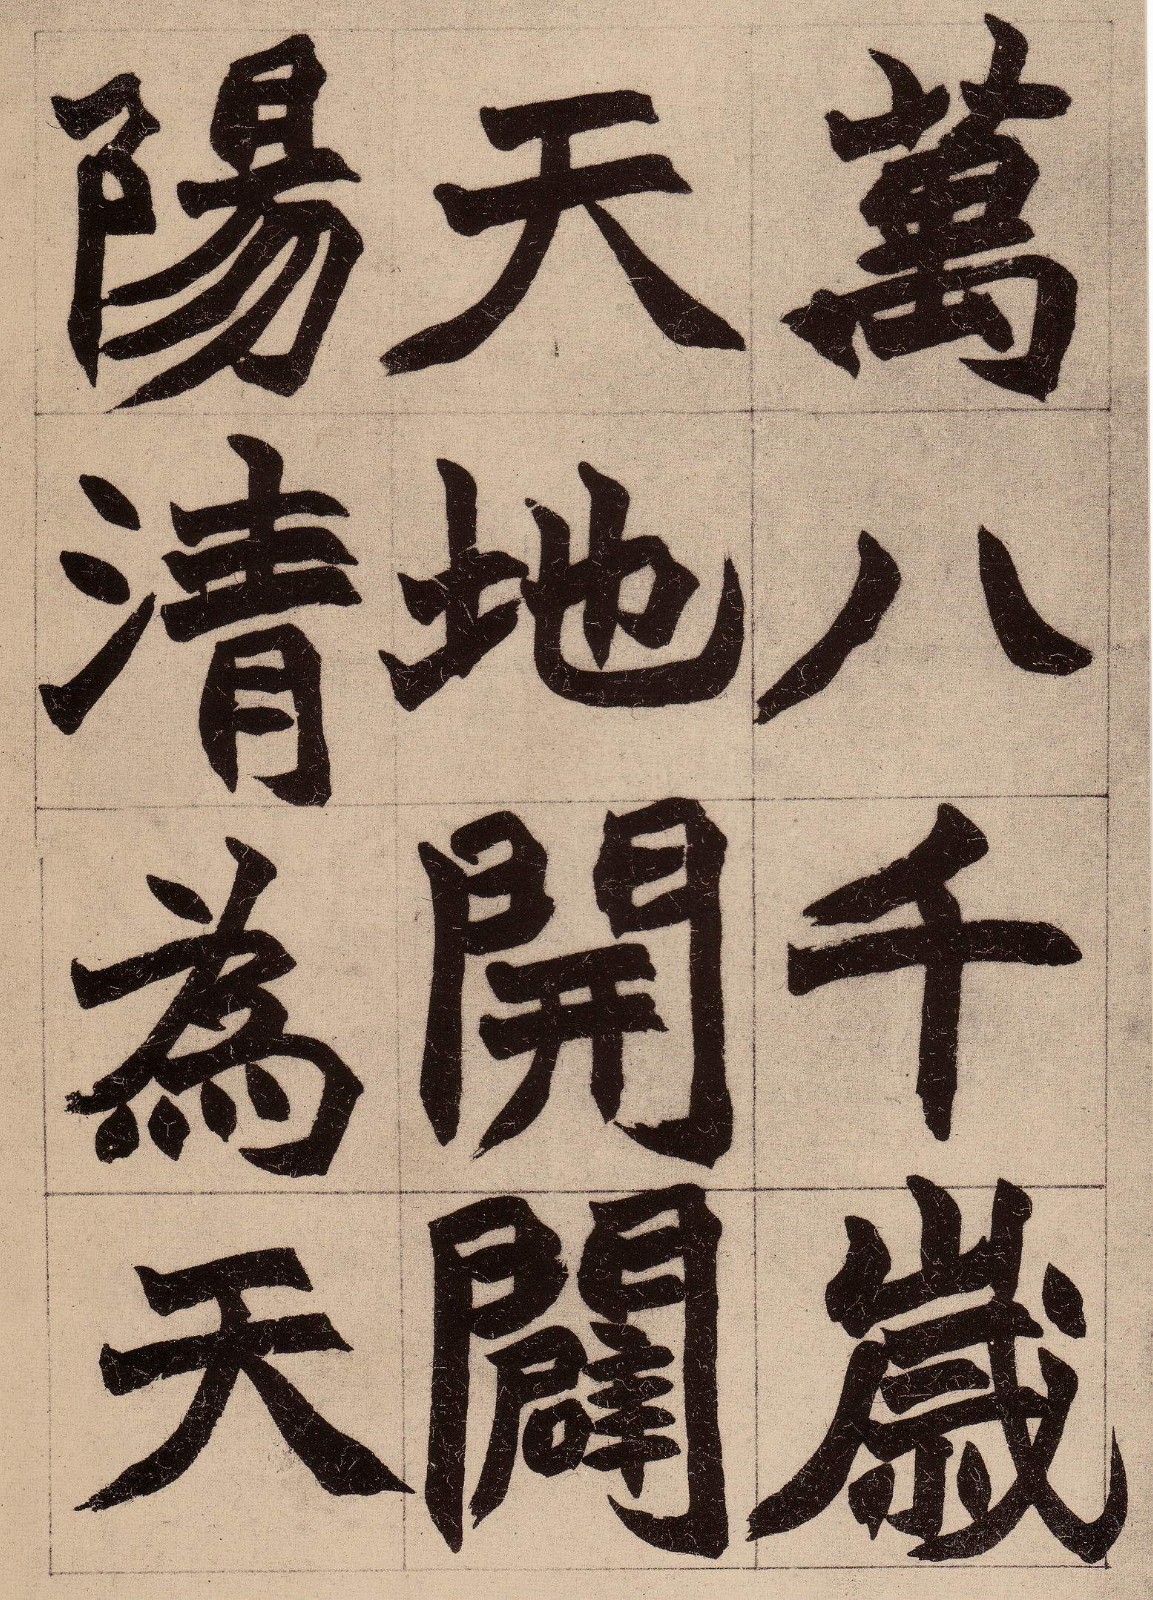 萬八千歳
天地開闢
陽清為天